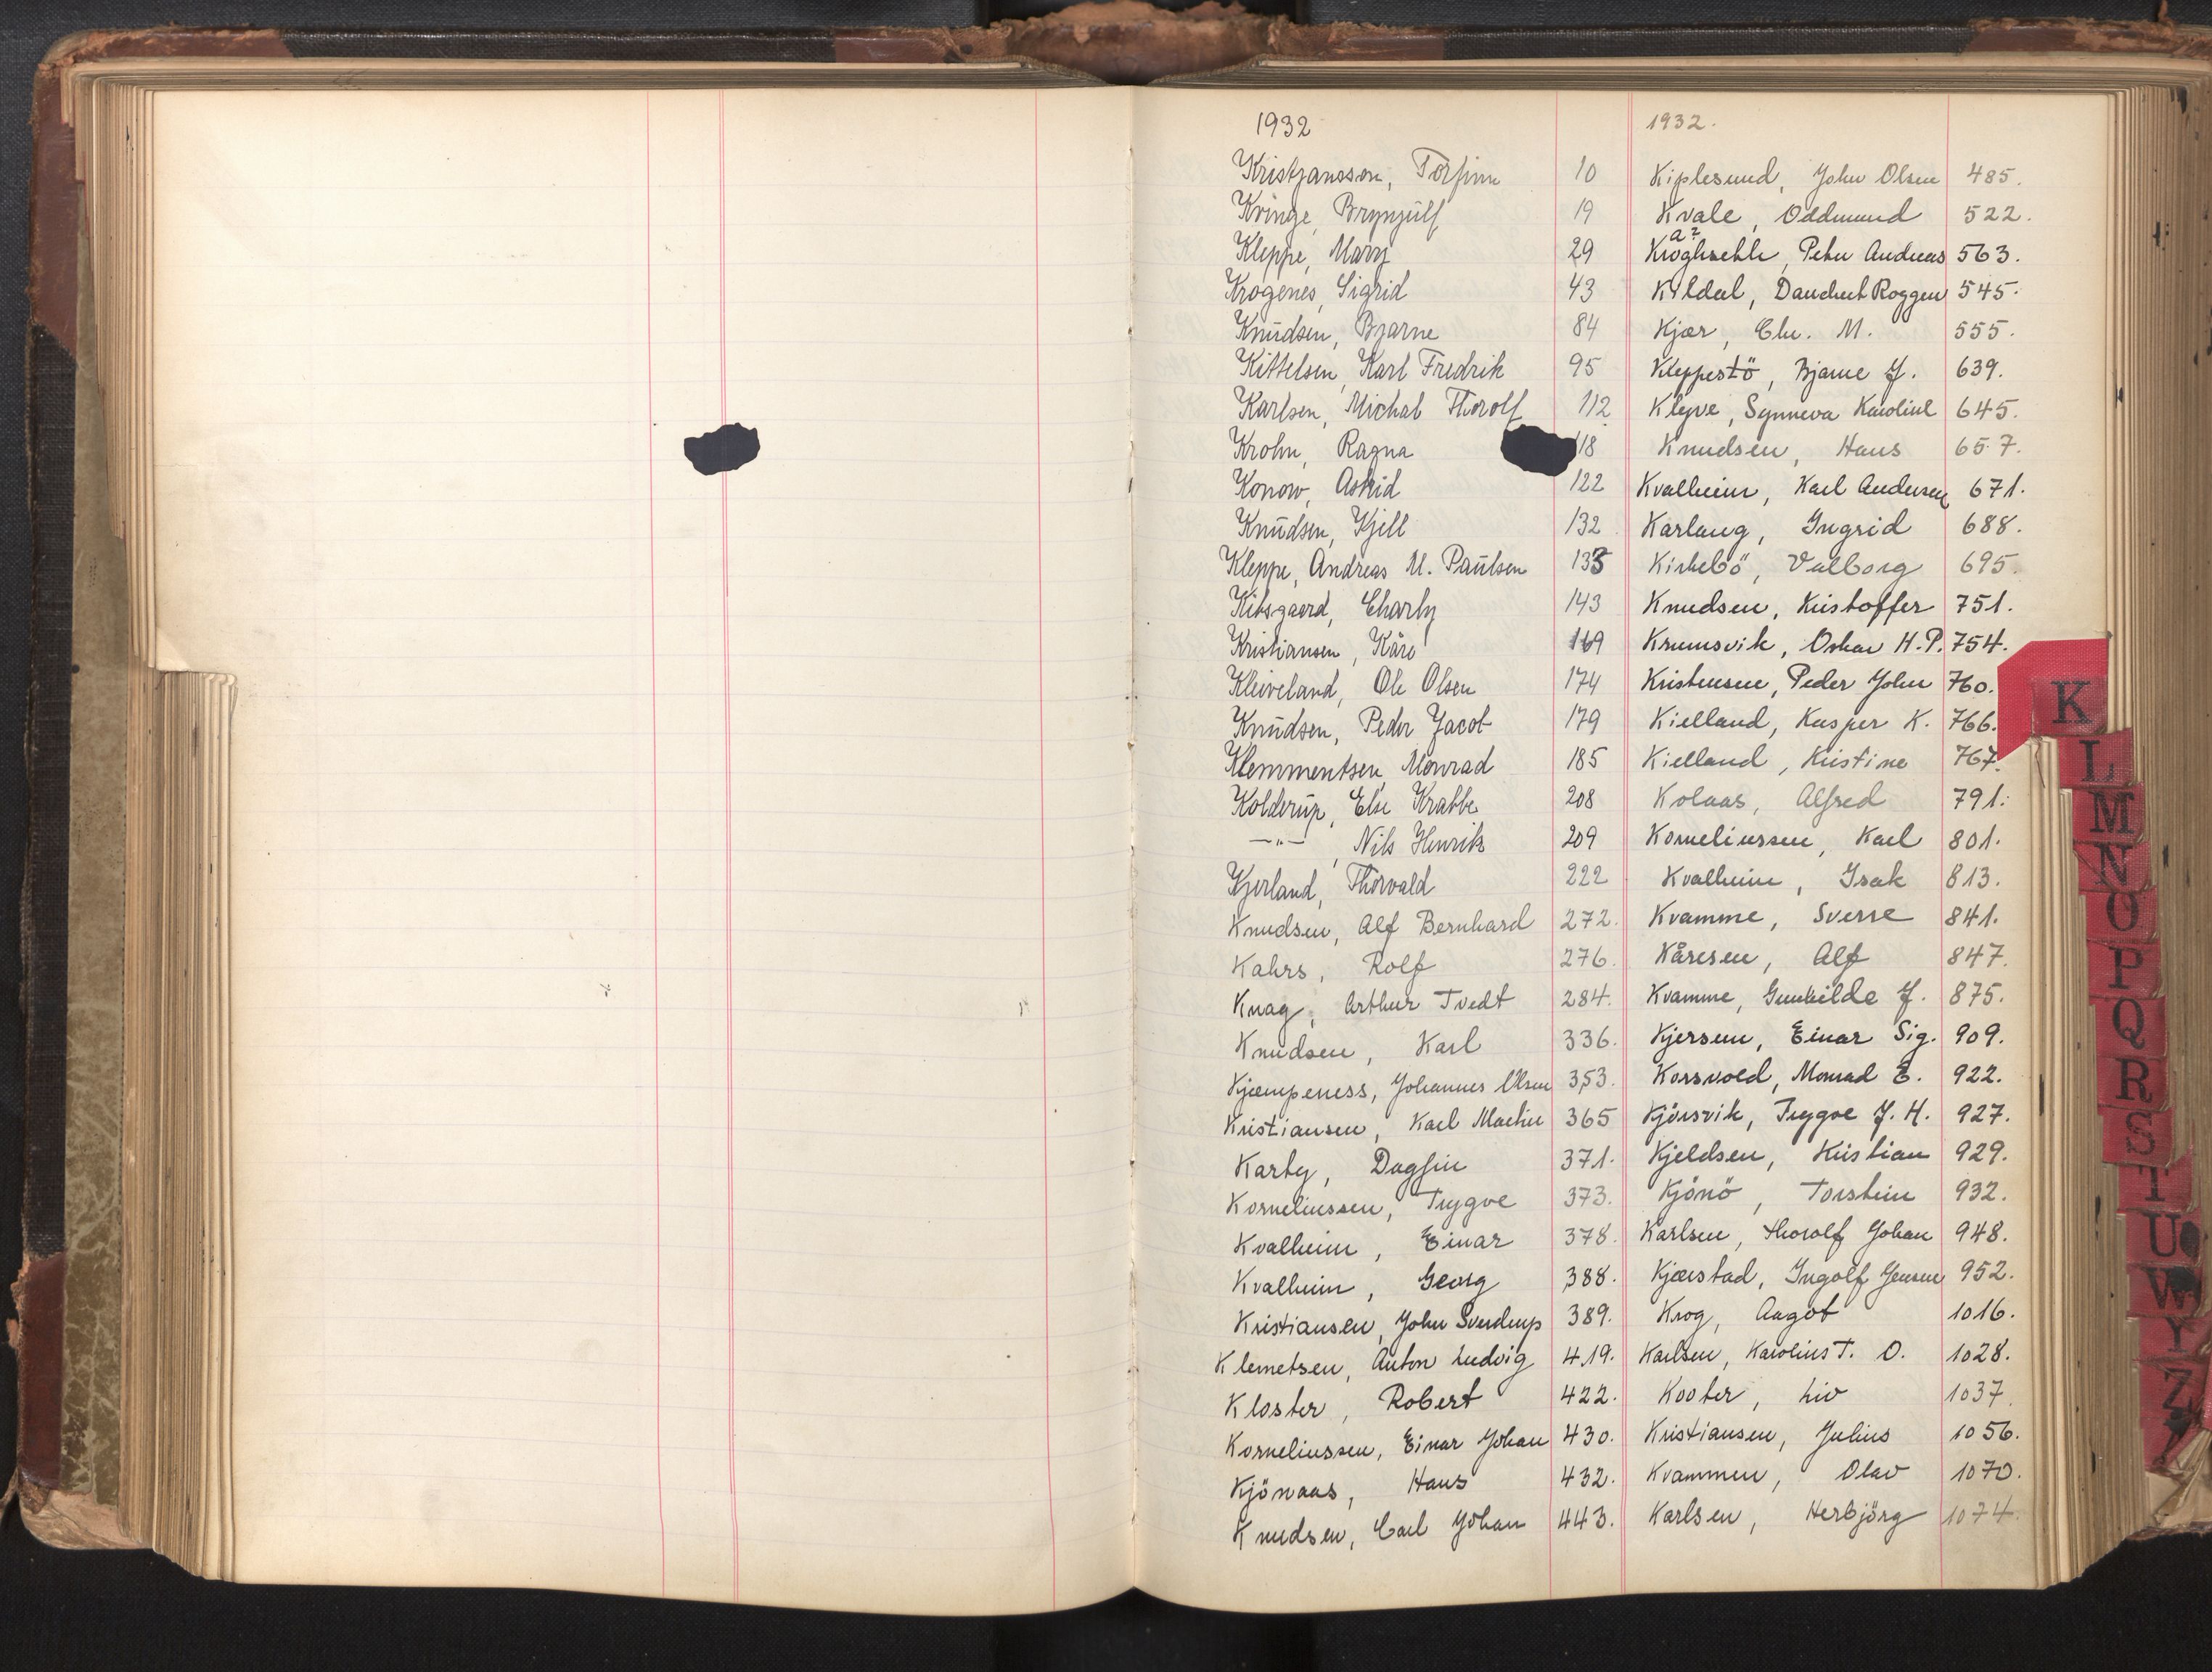 1932
Kristjansson, Torfinn 10
Kvinge, Brynjulf 19
Kleppe, Mary 29
Krogenes, Sigrid 43
Knudsen, Bjarne 84
Kittelsen, Karl Fredrik 95
Karlsen, Michal Thorolf 112
Krohn, Ragna 118
Konow, Astrid 122
Knudsen, Kjell 132
Kleppe, Andreas M. Paulsen 135
Kibsgaard, Charly 143
Kristiansen, Kåre 169
Kleiveland, Ole Olsen 174
Knudsen, Peder Jacob 179
Klemmentsen, Monrad 185
Kolderup, Else Krabbe 208
—"—, Nils Henrik 209
Kjerland, Thorvald 222
Knudsen, Alf Bernhard 272.
Kahrs, Rolf 276.
Knag, Arthur Tvedt 284.
Knudsen, Karl 336.
Kjæmpeness, Johannes Olsen 353.
Kristiansen, Karl Martin 365
Karty, Dagfin 371.
Korneliussen, Trygve 373.
Kvalheim, Einar 378.
Kvalheim, Georg 388.
Kristiansen, John Sverdrup 389.
Klemetsen, Anton Ludvig 419.
Kloster, Robert 422.
Korneliussen, Einar Johan 430.
Kjönaas, Hans 432.
Knudsen, Carl Johan 443.
1932.
Kiplesund, John Olsen 485.
Kvale, Oddmund 522.
a?
Peter Andreas 563.
Roggen 545.
Kjær, Chr. M. 555.
Kleppestö, Bjarne J. 639.
Kleyve, Synneva Karoline 645.
Knudsen, Hans 657.
Kvalheim, Karl Andersen 671.
Karlaug, Ingrid 688.
Kirkebö, Valborg 695.
Knudsen, Kristoffer 751.
Krumsvik, Oskar H.P. 754.
Kristensen, Peder John 760.
Kielland, Kasper K. 766.
Kielland, Kristine 767.
Kolaas, Alfred 791.
Korneliussen, Karl 801.
Kvalheim, Isak 813.
Kvamme, Sverre 841.
Kåresen, Alf 847.
Kvamme, Gunhilde J. 875.
Kjersem, Einar Sig. 909.
Korsvold, Monrad E. 922.
Kjörsvik, Trygve J. H. 927.
Kjeldsen, Kristian 929.
Kjönö, Torstein 932.
Karlsen, Thorolf Johan 948.
Kjærstad, Ingolf Jensen 952.
Krog, Aagot 1016.
Karlsen, Karolius T. O. 1028.
Kooter, Liv 1037.
Kristiansen, Julius 1056.
Kvammen, Olav 1070.
Karlsen, Herbjörg 1074.
K
L
M
N
O
P
Q
R
S
T
U
W
Y
Z